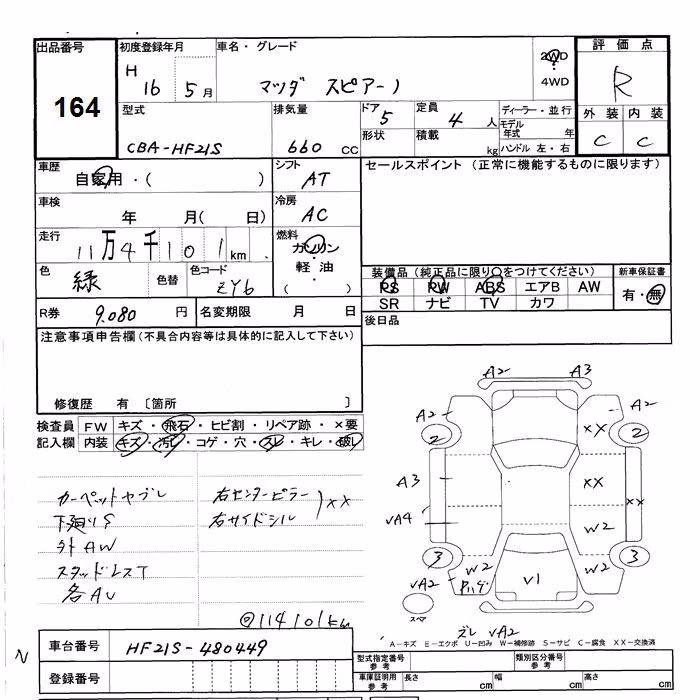 出品番号
164
初度登録年月
H 16 5月
車名・グレード
マツダ スピアーノ
2WD
4WD
評価点
R
型式
CBA-HF21S
排気量
660 CC
ドア
5
形状
定員
4 人
積載
kg
ディーラー・並行
モデル年式 年
ハンドル 左・右
外装 内装
C C
車歴
自家用・( )
シフト
AT
セールスポイント (正常に機能するものに限ります)
車検
年 月( 日)
冷房
AC
走行
11万4千101km
燃料
ガソリン
軽油
( )
色
緑
色替
色コード
ZY6
装備品(純正品に限り○をつけてください)
PS PW ABS エアB AW
SR ナビ TV カワ
新車保証書
有・無
R券 9.080 円
名変期限 月 日
後日品
注意事項申告欄(不具合内容等は具体的に記入して下さい)
修復歴 有 〔箇所 〕
検査員記入欄
FW キズ・飛石・ヒビ割・リペア跡・×要
内装 キズ・汚レ・コゲ・穴・スレ・キレ・破レ
カーペットヤブレ
下廻りS
外AW
スタッドレスT
各AU
右センターピラー
右サイドシル
)××
◎114101km
A2 A3
A2 A2
2 ×× 2
A3 ×× ××
VA4 W2
3 W2 W2 3
VA2 V1
スペア
ズレ VA2
A-キズ E-エクボ U-凹み W-補修跡 S-サビ C-腐食 XX-交換済
N
車台番号 HF21S-480449
登録番号
型式指定番号
参考
類別区分番号
参考
車庫証明用
参考
長さ cm 幅 cm 高さ cm